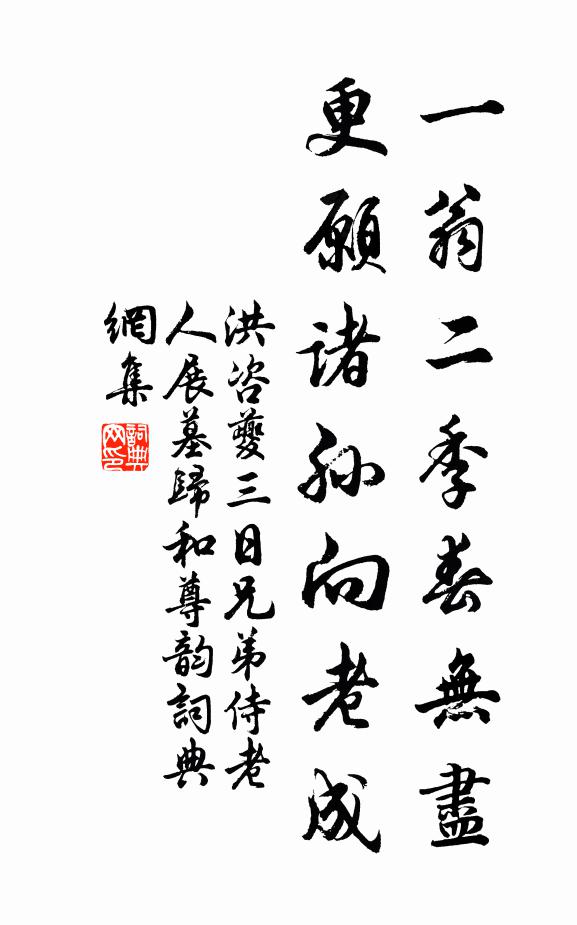 一翁二季春無盡
更願诸孫向老成
洪咨夔三日兄弟侍老
人展墓歸和尊韵詞典
網集
詞典网印